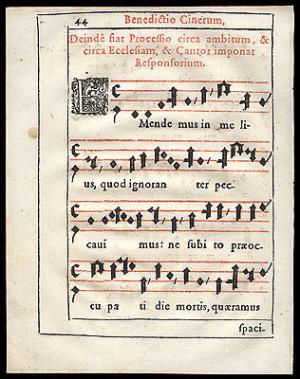 44 Benedictio Cinerum,
Deindè fiat Processio circa ambitum, &
circa Ecclesiam, & Cantor imponat
Responsorium.
EMende mus in me li-
us, quod ignoran ter pec-
caui mus: ne subi to præoc-
cu pa ti die mortis, quæramus
spaci-